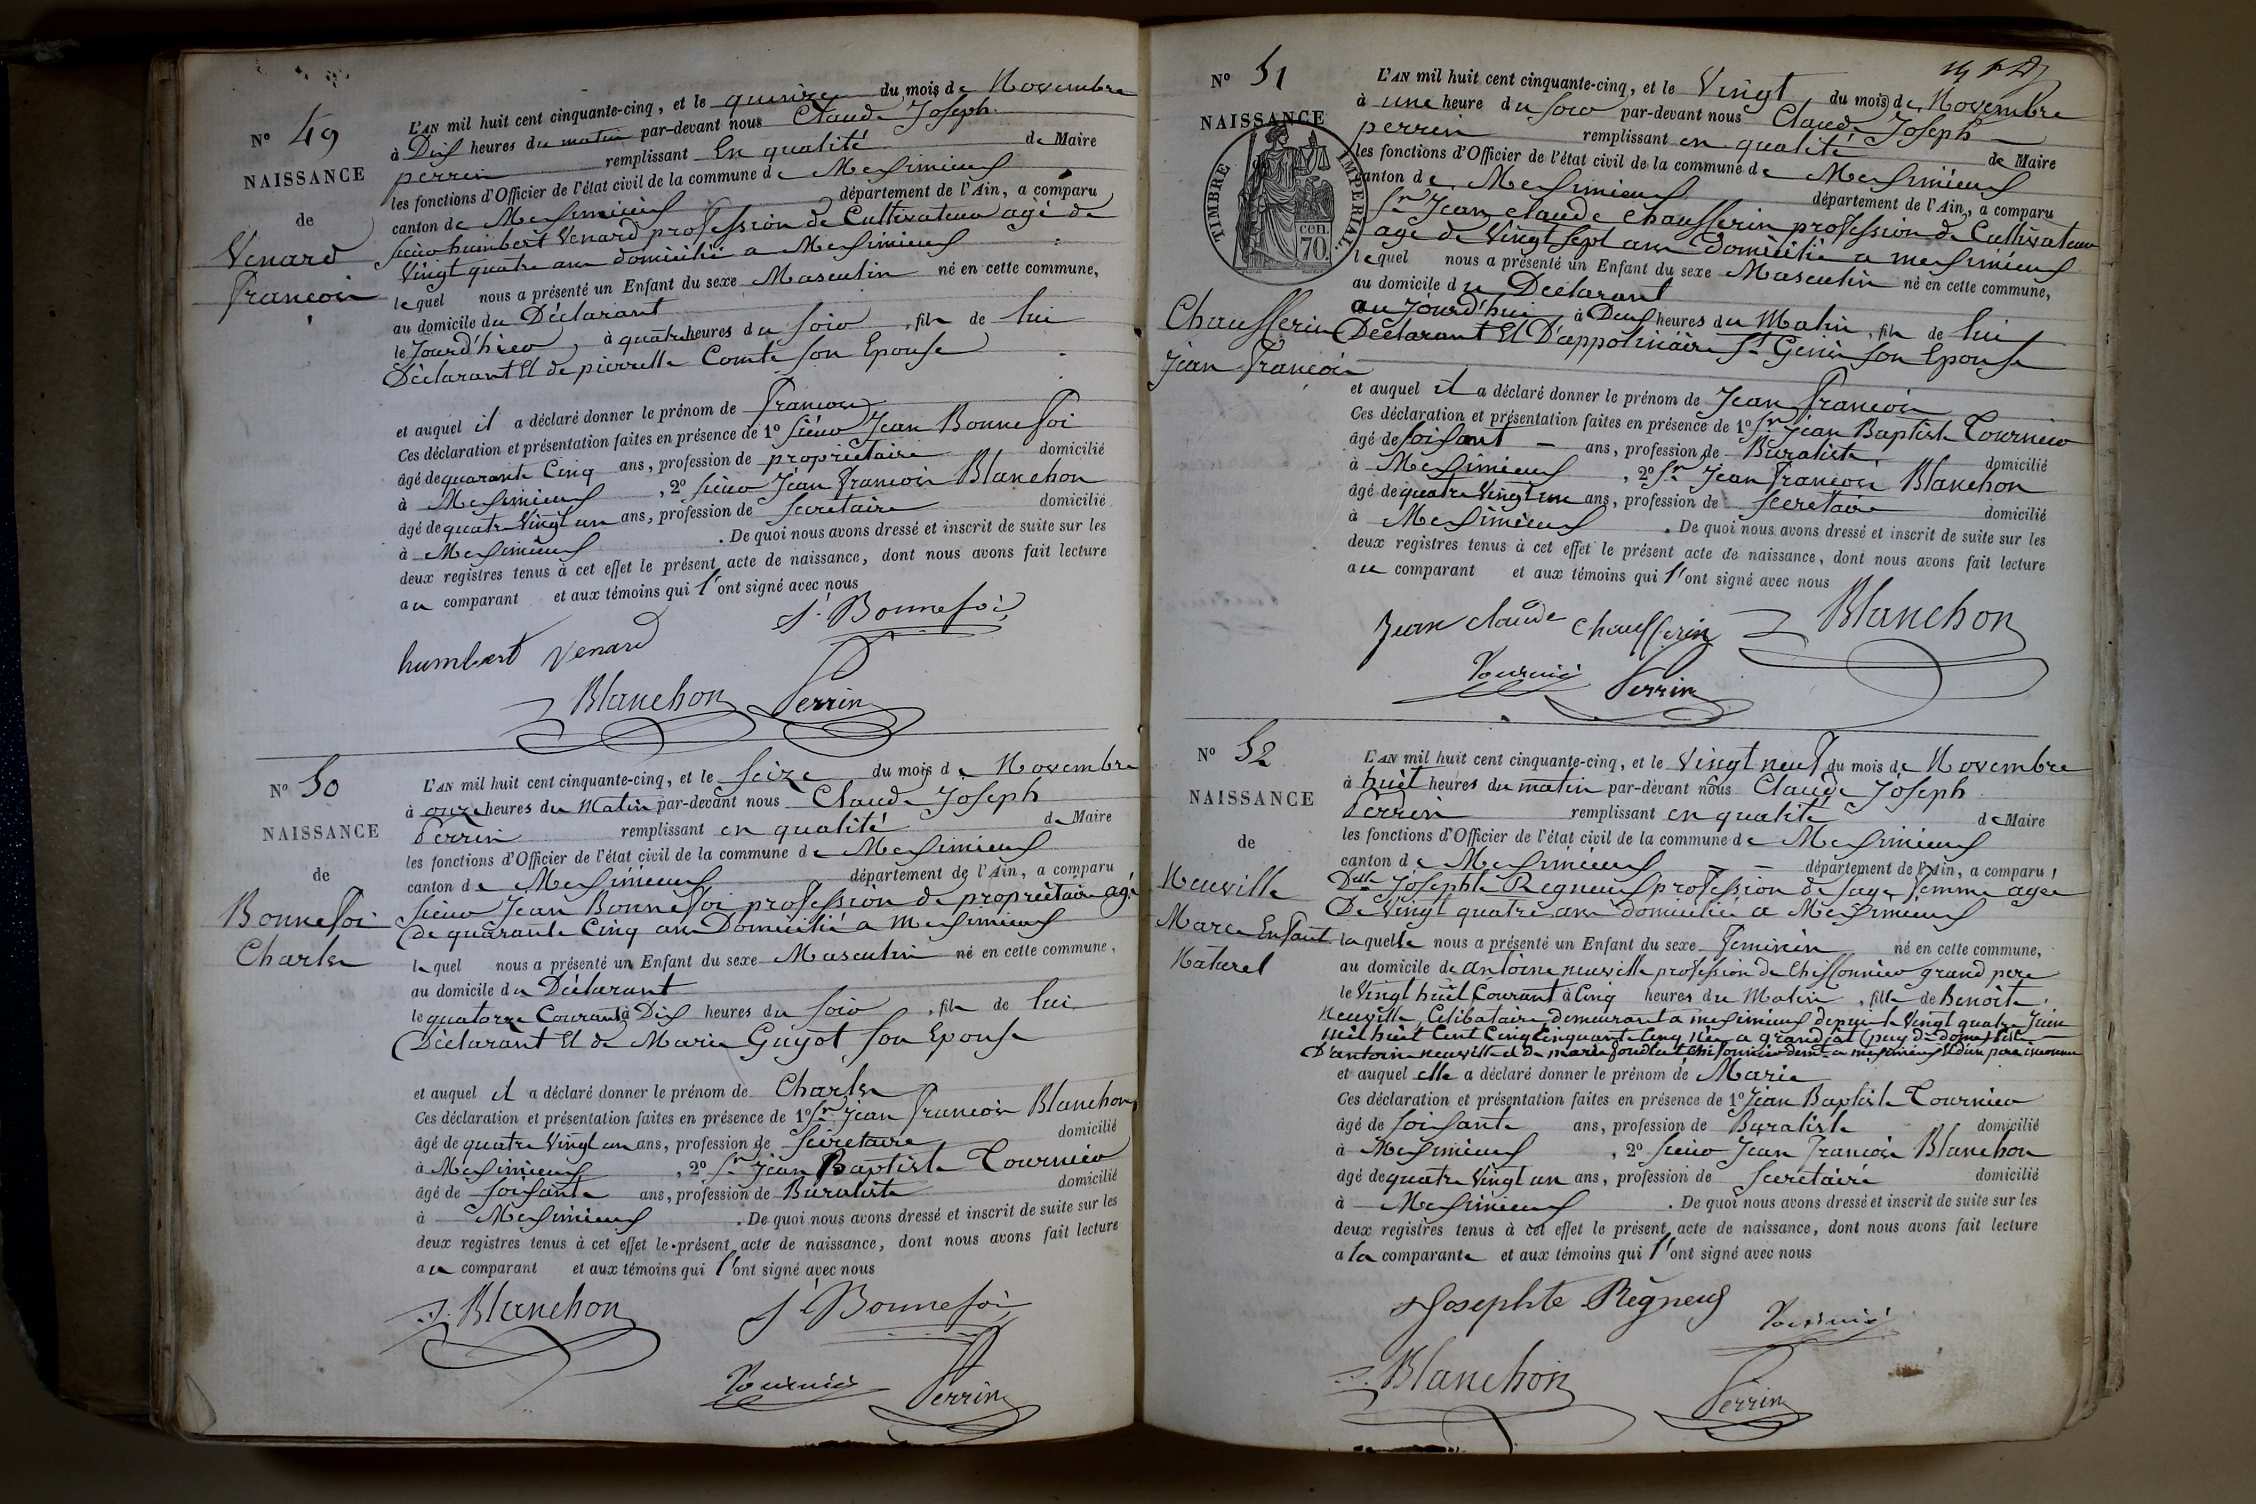 N° 49
NAISSANCE
de
Venard
francois
L'AN mil huit cent cinquante-cinq, et le quinize du mois de Novembre
à Dix heures du matin par-devant nous Claude Joseph
perrin remplissant En qualité de Maire
les fonctions d'Officier de l'état civil de la commune de Meximieux
canton de Meximieux département de l'Ain, a comparu
sieur humbert Venard profession de Cultivateur agé de
Vingt quatre ans domicilié a Meximieux
lequel nous a présenté un Enfant du sexe Masculin né en cette commune,
au domicile du Déclarant
le Jourd'hier, à quatre heures du soir, fils de lui
Déclarant Et de pierrette Comte son Epouse
et auquel il a déclaré donner le prénom de francois
Ces déclaration et présentation faites en présence de 1° sieur Jean Bonnefoi
âgé de quarante Cinq ans, profession de propriétaire domicilié
à Meximieux, 2° sieur Jean francois Blanchon
âgé de quatre Vingt un ans, profession de secretaire domicilié
à Meximieux. De quoi nous avons dressé et inscrit de suite sur les
deux registres tenus à cet effet le présent acte de naissance, dont nous avons fait lecture
au comparant et aux témoins qui l'ont signé avec nous
J. Bonnefoi
humbert Venard
Blanchon Perrin
N° 50
NAISSANCE
de
Bonnefoi
Charles
L'AN mil huit cent cinquante-cinq, et le seize du mois de Novembre
à onze heures du Matin par-devant nous Claude Joseph
Perrin remplissant en qualité de Maire
les fonctions d'Officier de l'état civil de la commune de Meximieux
canton de Meximieux département de l'Ain, a comparu
sieur Jean Bonnefoi profession de propriétaire agé
de quarante Cinq ans Domicilié a Meximieux
lequel nous a présenté un Enfant du sexe Masculin né en cette commune,
au domicile du Déclarant
le quatorze Courant à Dix heures du soir, fils de lui
Déclarant Et de Marie Guyot son Epouse
et auquel il a déclaré donner le prénom de Charles
Ces déclaration et présentation faites en présence de 1° sr Jean francois Blanchon
âgé de quatre Vingt un ans, profession de secretaire domicilié
à Meximieux, 2° sr Jean Baptiste Tournier
âgé de soixante ans, profession de Buraliste domicilié
à Meximieux. De quoi nous avons dressé et inscrit de suite sur les
deux registres tenus à cet effet le présent acte de naissance, dont nous avons fait lecture
au comparant et aux témoins qui l'ont signé avec nous
Blanchon J. Bonnefoi
Tournié Perrin
N° 51
NAISSANCE
TIMBRE IMPERIAL
70 cen.
Chausserin
Jean francois
L'AN mil huit cent cinquante-cinq, et le Vingt du mois de Novembre
à une heure du soir par-devant nous Claude Joseph
perrin remplissant en qualité de Maire
les fonctions d'Officier de l'état civil de la commune de Meximieux
canton de Meximieux département de l'Ain, a comparu
sr Jean claude chausserin profession de Cultivateur
agé de Vingt sept ans domicilié a meximieux
lequel nous a présenté un Enfant du sexe Masculin né en cette commune,
au domicile du Déclarant
au Jourd'hui à Deux heures du Matin, fils de lui
Déclarant Et D'appolinaire St Genis son Epouse
et auquel il a déclaré donner le prénom de Jean francois
Ces déclaration et présentation faites en présence de 1° sr Jean Baptiste Tournier
âgé de soixant ans, profession de Buraliste domicilié
à Meximieux, 2° sr Jean francois Blanchon
âgé de quatre Vingt un ans, profession de secretaire domicilié
à Meximieux. De quoi nous avons dressé et inscrit de suite sur les
deux registres tenus à cet effet le présent acte de naissance, dont nous avons fait lecture
au comparant et aux témoins qui l'ont signé avec nous
Jean claude chausserin Blanchon
Tournié Perrin
N° 52
NAISSANCE
de
Neuville
Marie Enfant
Naturel
L'AN mil huit cent cinquante-cinq, et le Vingt neuf du mois de Novembre
à huit heures du matin par-devant nous Claude Joseph
Perrin remplissant en qualité de Maire
les fonctions d'Officier de l'état civil de la commune de Meximieux
canton de Meximieux département de l'Ain, a comparu
Dlle Josephte Regneux profession de sage femme agée
De Vingt quatre ans domiciliée a Meximieux
laquelle nous a présenté un Enfant du sexe feminin né en cette commune,
au domicile de antoine neuville profession de Chiffonnier grand pere
le Vingt huit Courant à Cinq heures du Matin, fille de Benoite
Neuville, Célibataire demeurant a meximieux depuis le Vingt quatre Juin
mil huit Cent Cinq Cinquante Cinq Née a grandval (puy de dome) fille
D'antoine neuville et de marie chiffonnier demt a meximieux Et d'un pere inconnu
et auquel elle a déclaré donner le prénom de Marie
Ces déclaration et présentation faites en présence de 1° Jean Baptiste Tournier
âgé de soixante ans, profession de Buraliste domicilié
à Meximieux, 2° sieur Jean francois Blanchon
âgé de quatre Vingt un ans, profession de secretaire domicilié
à Meximieux. De quoi nous avons dressé et inscrit de suite sur les
deux registres tenus à cet effet le présent acte de naissance, dont nous avons fait lecture
a la comparante et aux témoins qui l'ont signé avec nous
Josephte Régneux Tournié
Blanchon Perrin